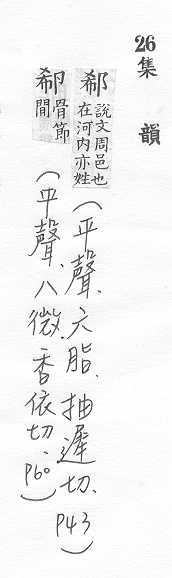 26集　韻
郗說文周邑也在河内亦姓（平聲、六脂、抽遲切、P43）
郗骨節間（平聲、八微、香依切、P60）